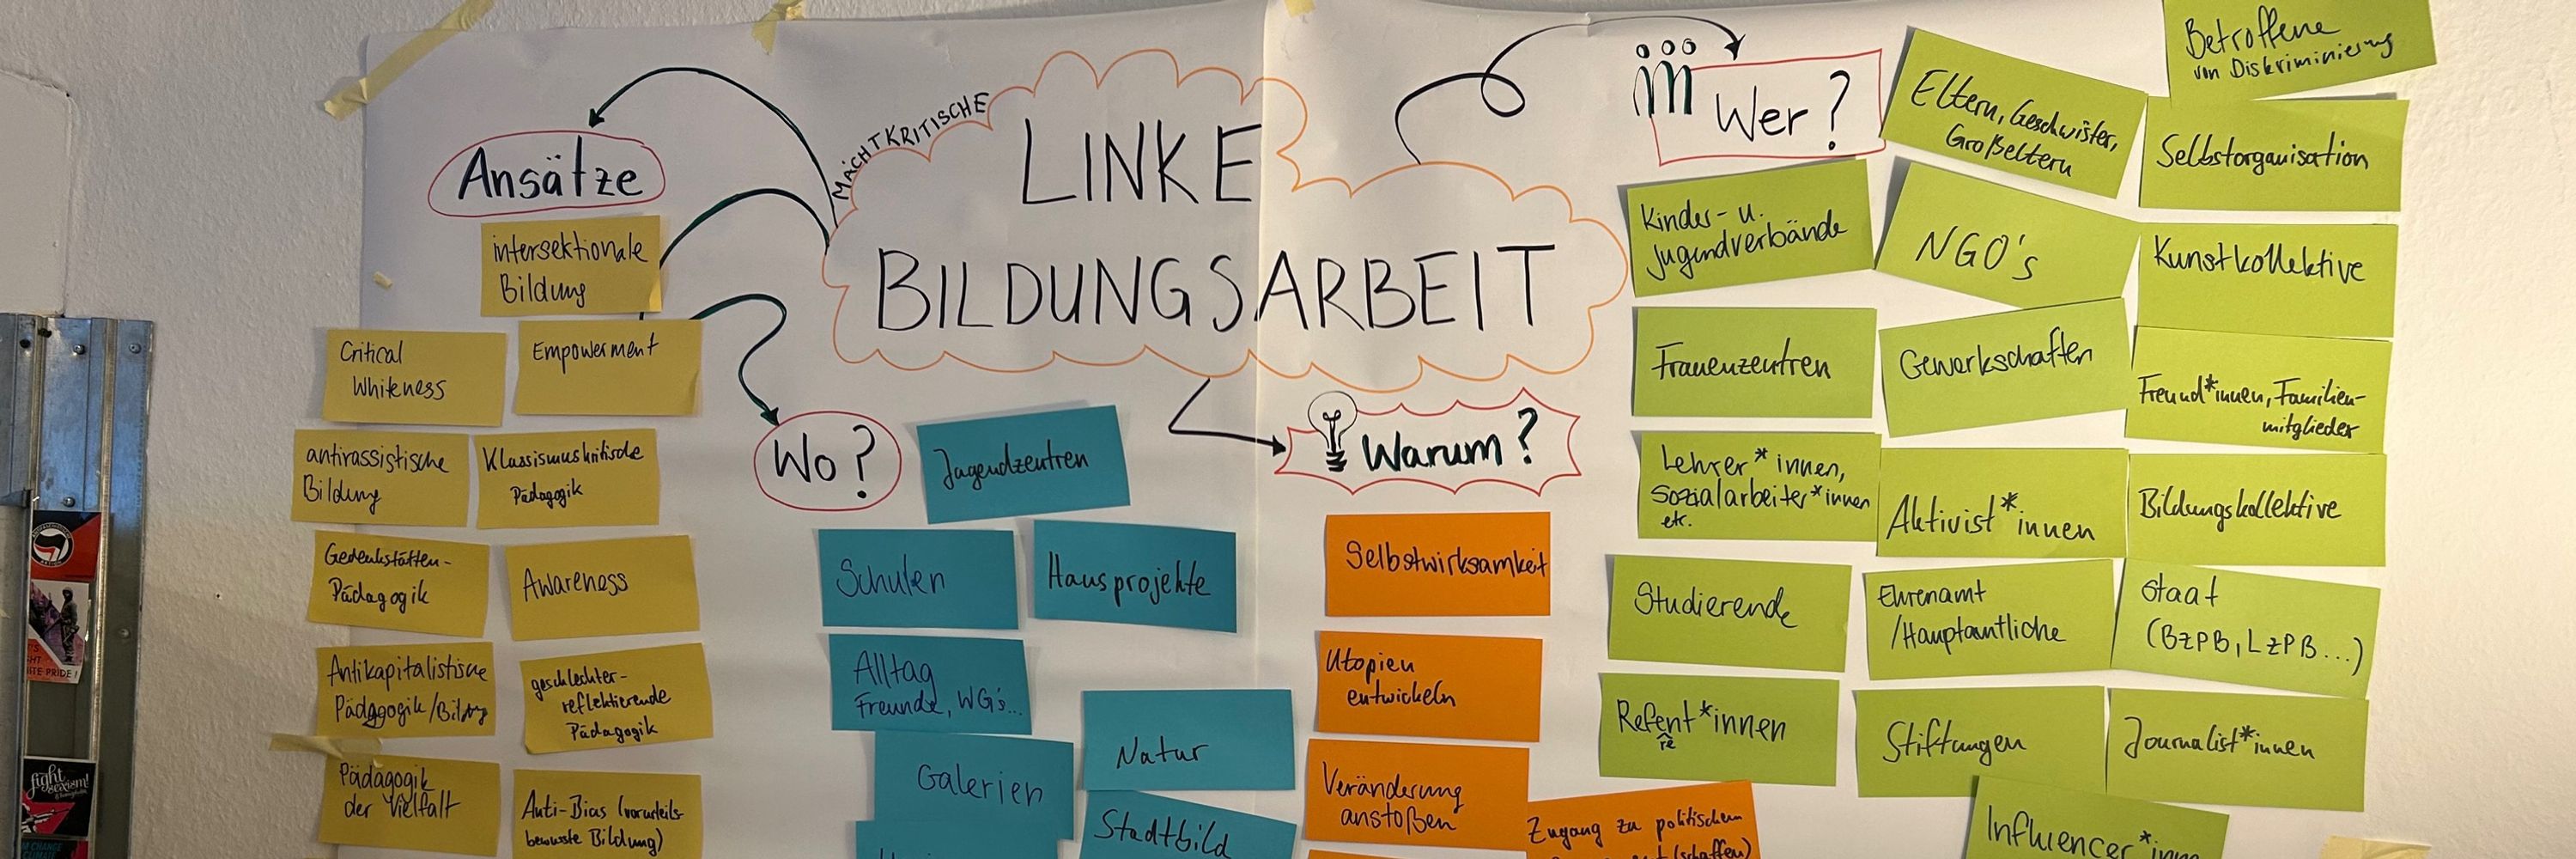 MACHTKRITISCHE
LINKE
BILDUNGSARBEIT
Ansätze
intersektionale
Bildung
Critical
Whiteness
Empowerment
antirassistische
Bildung
Klassismuskritische
Pädagogik
Gedenkstätten-
Pädagogik
Awareness
Antikapitalistische
Pädagogik/Bildung
geschlechter-
reflektierende
Pädagogik
Pädagogik
der Vielfalt
Anti-Bias (vorurteils-
bewusste Bildung)
Wo?
Jugendzentren
Schulen
Hausprojekte
Alltag
Freunde, WG's...
Natur
Galerien
Stadtbild
Warum?
Selbstwirksamkeit
Utopien
entwickeln
Veränderung
anstoßen
Zugang zu politischem
(schaffen)
Wer?
Eltern, Geschwister,
Großeltern
Betroffene
von Diskriminierung
Selbstorganisation
Kinder- u.
Jugendverbände
NGO's
Kunstkollektive
Frauenzentren
Gewerkschaften
Freund*innen, Familien-
mitglieder
Lehrer*innen,
Sozialarbeiter*innen
etc.
Aktivist*innen
Bildungskollektive
Studierende
Ehrenamt
/Hauptamtliche
Staat
(BzPB, LzPB...)
Refent*innen
re
Stiftungen
Journalist*innen
Influencer*inn
fight
sexism!